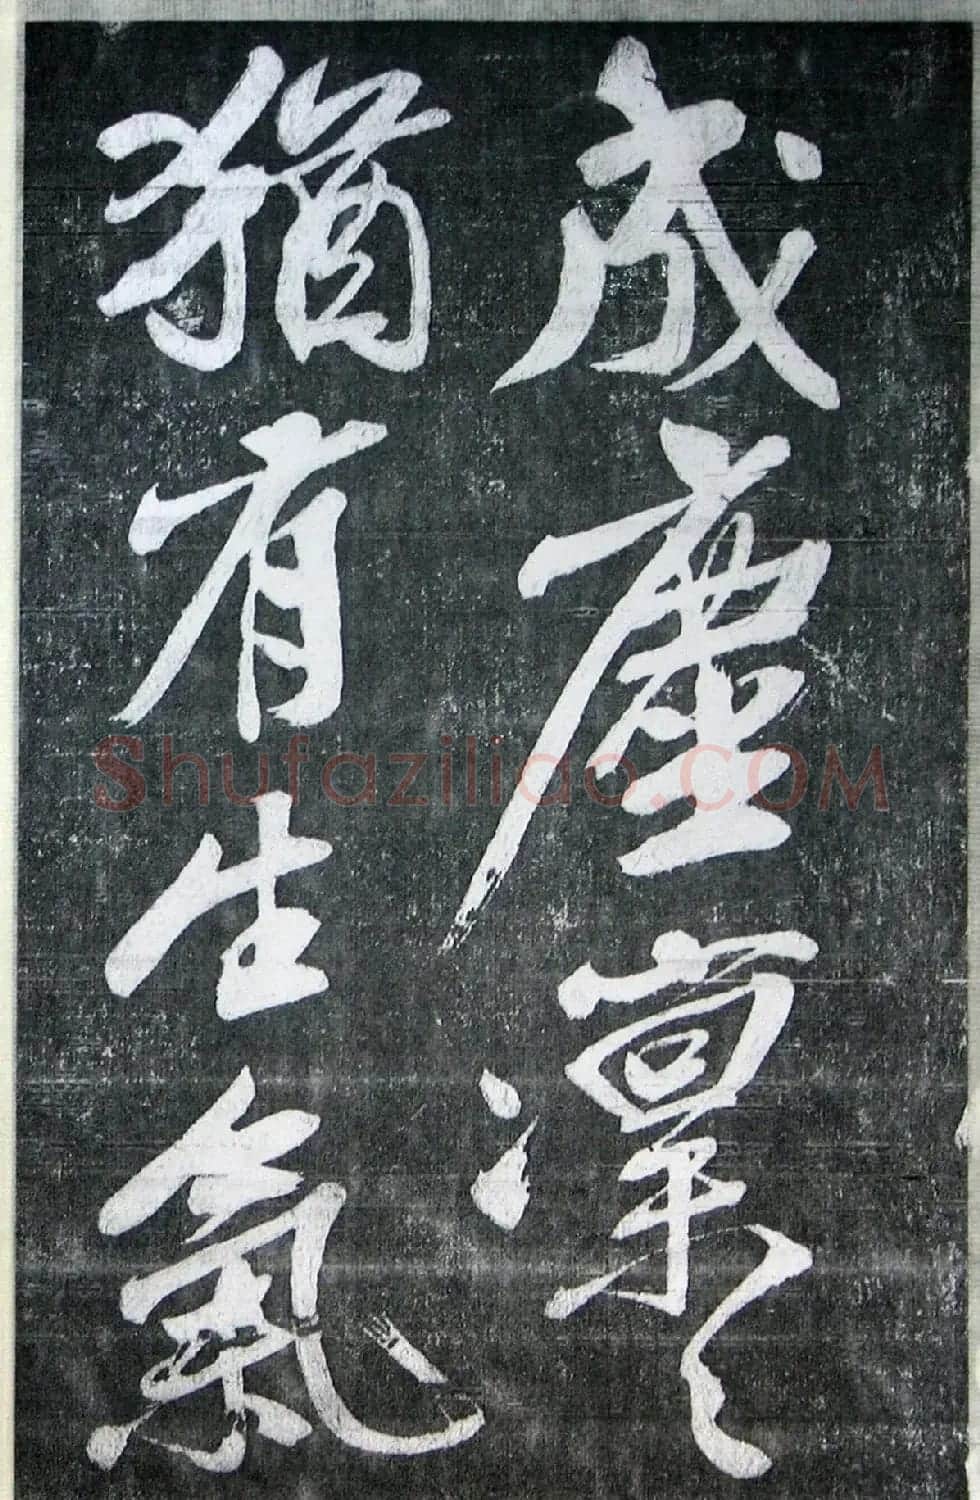 成塵凜〻
猶有生氣
Shufaziliao.COM